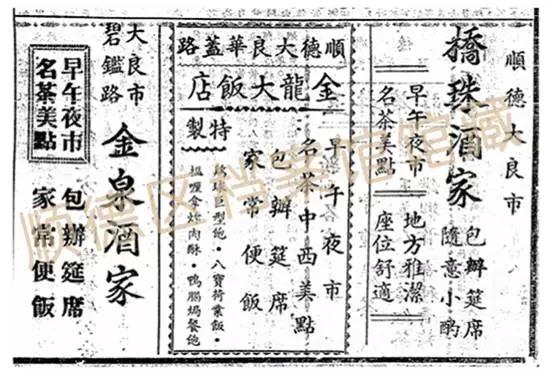 順德大良市
橋珠酒家
包辦筵席
隨意小酌
早午夜市
名茶美點
地方雅潔
座位舒適
順德大良華蓋路
金龍大飯店
早午夜市
名茶中西美點
包辦筵席
家常便飯
特製
球巨型飽·八寶荷葉飯·
拿炸肉酥·鴨焗餐飽
大良市
碧鑑路
金泉酒家
早午夜市
名茶美點
包辦筵席
家常便飯
顺德区档案馆馆藏